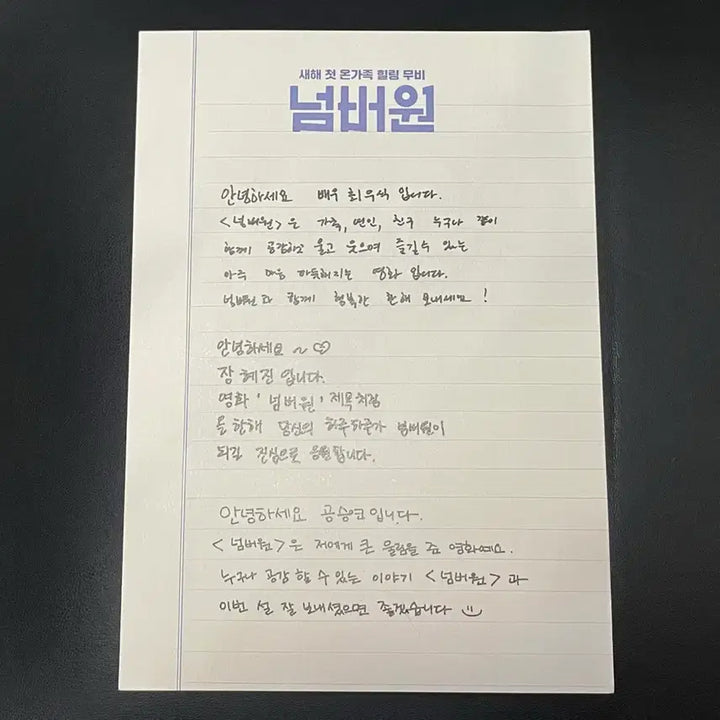 새해 첫 온가족 힐링 무비
넘버원
안녕하세요 배우 최우식 입니다.
<넘버원>은 가족, 연인, 친구 누구나 같이
함께 공감하고 울고 웃으며 즐길수 있는
아주 마음 따뜻해지는 영화 입니다.
넘버원과 함께 행복한 한해 보내세요!
안녕하세요~
장혜진 입니다.
영화 '넘버원' 제목처럼
올 한해 당신의 하루하루가 넘버원이
되길 진심으로 응원합니다.
안녕하세요 공승연입니다.
<넘버원>은 저에게 큰 울림을 준 영화예요.
누구나 공감 할 수 있는 이야기 <넘버원>과
이번 설 잘 보내셨으면 좋겠습니다